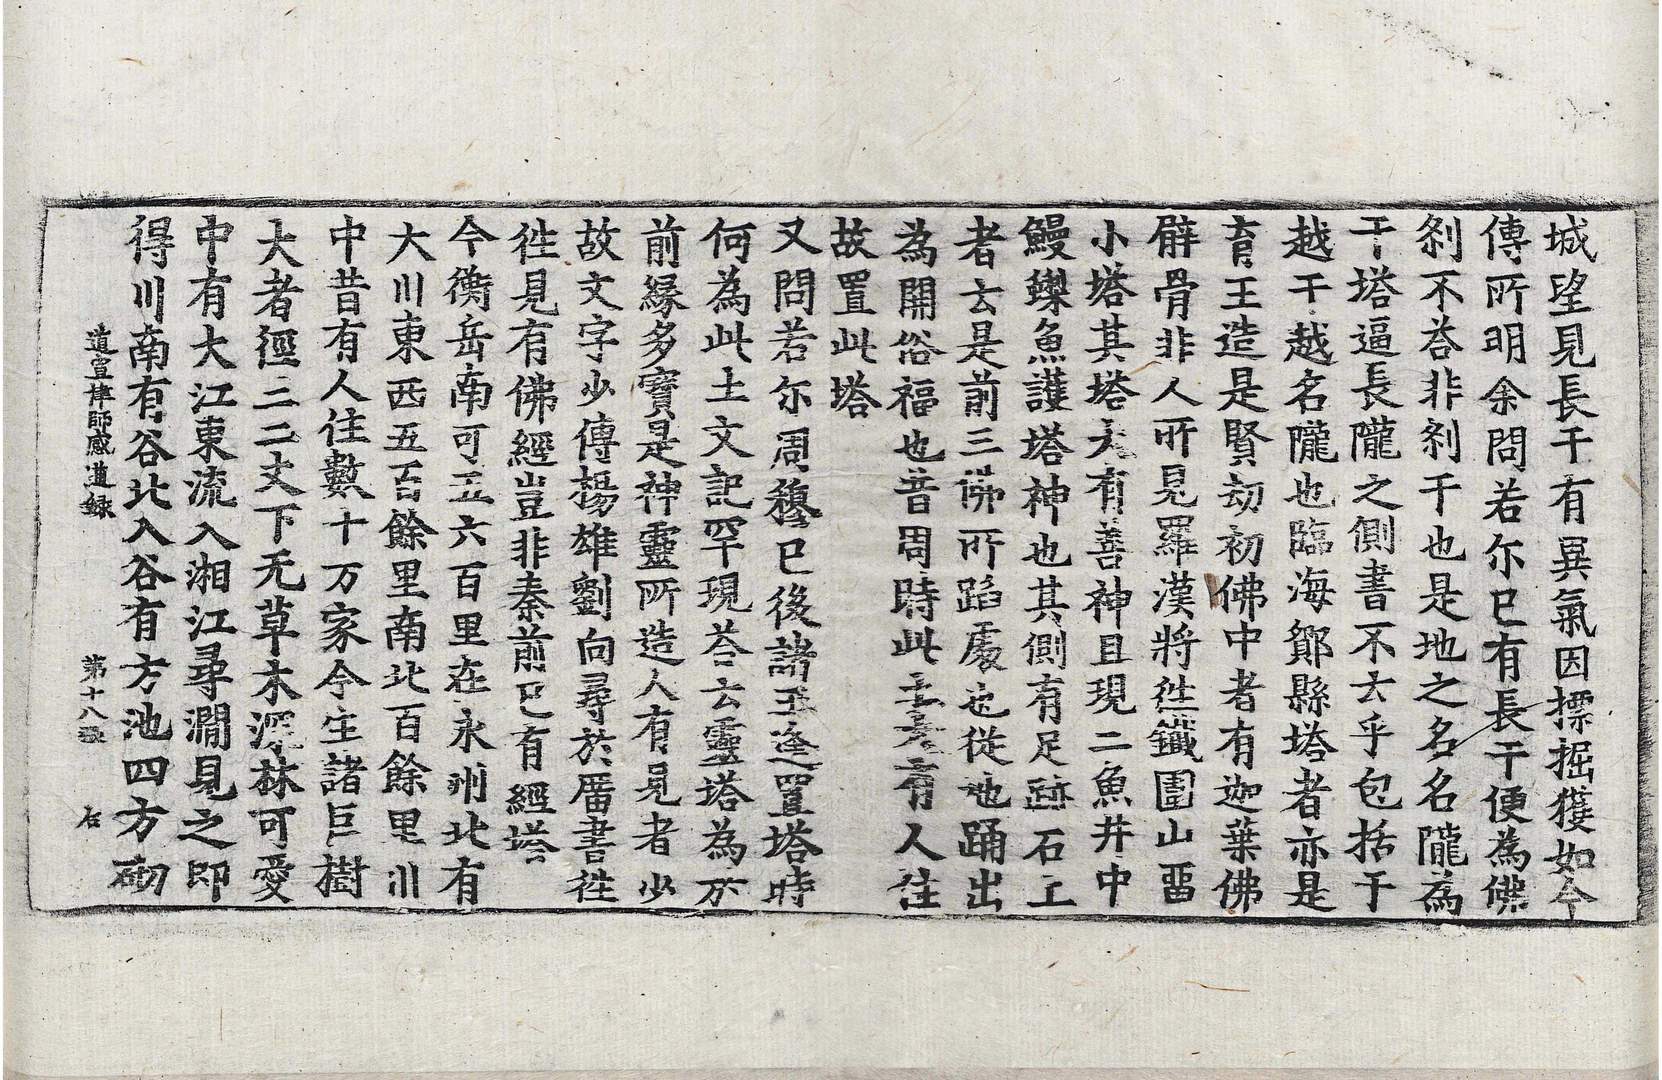 城望見長干有異氣因摽掘獲如今
傳所明余問若尔已有長干便為佛
刹不荅非刹干也是地之名名隴為
干塔逼長隴之側書不云乎包括于
越干越名隴也臨海鄮縣塔者亦是
育王造是賢劫初佛中者有迦葉佛
臂骨非人所見羅漢將徃鐵圍山畱
小塔其塔大有善神且現二魚井中
鰻䱇魚護塔神也其側有足跡石上
者云是前三佛所蹈處也從地踊出
為開俗福也昔周時此土大有人住
故置此塔
又問若尔周穆已後諸王造置塔時
何為此土文記罕現荅云靈塔為於
前緣多寶是神靈所造人有見者少
故文字少傳楊雄劉向尋於藏書徃
徃見有佛經豈非秦前已有經塔
今衡岳南可五六百里在永州北有
大川東西五百餘里南北百餘里川
中昔有人住數十万家今生諸巨樹
大者徑二三丈下无草木深林可愛
中有大江東流入湘江尋澗見之即
得川南有谷北入谷有方池四方砌
道宣律師感通録 第十八張 右